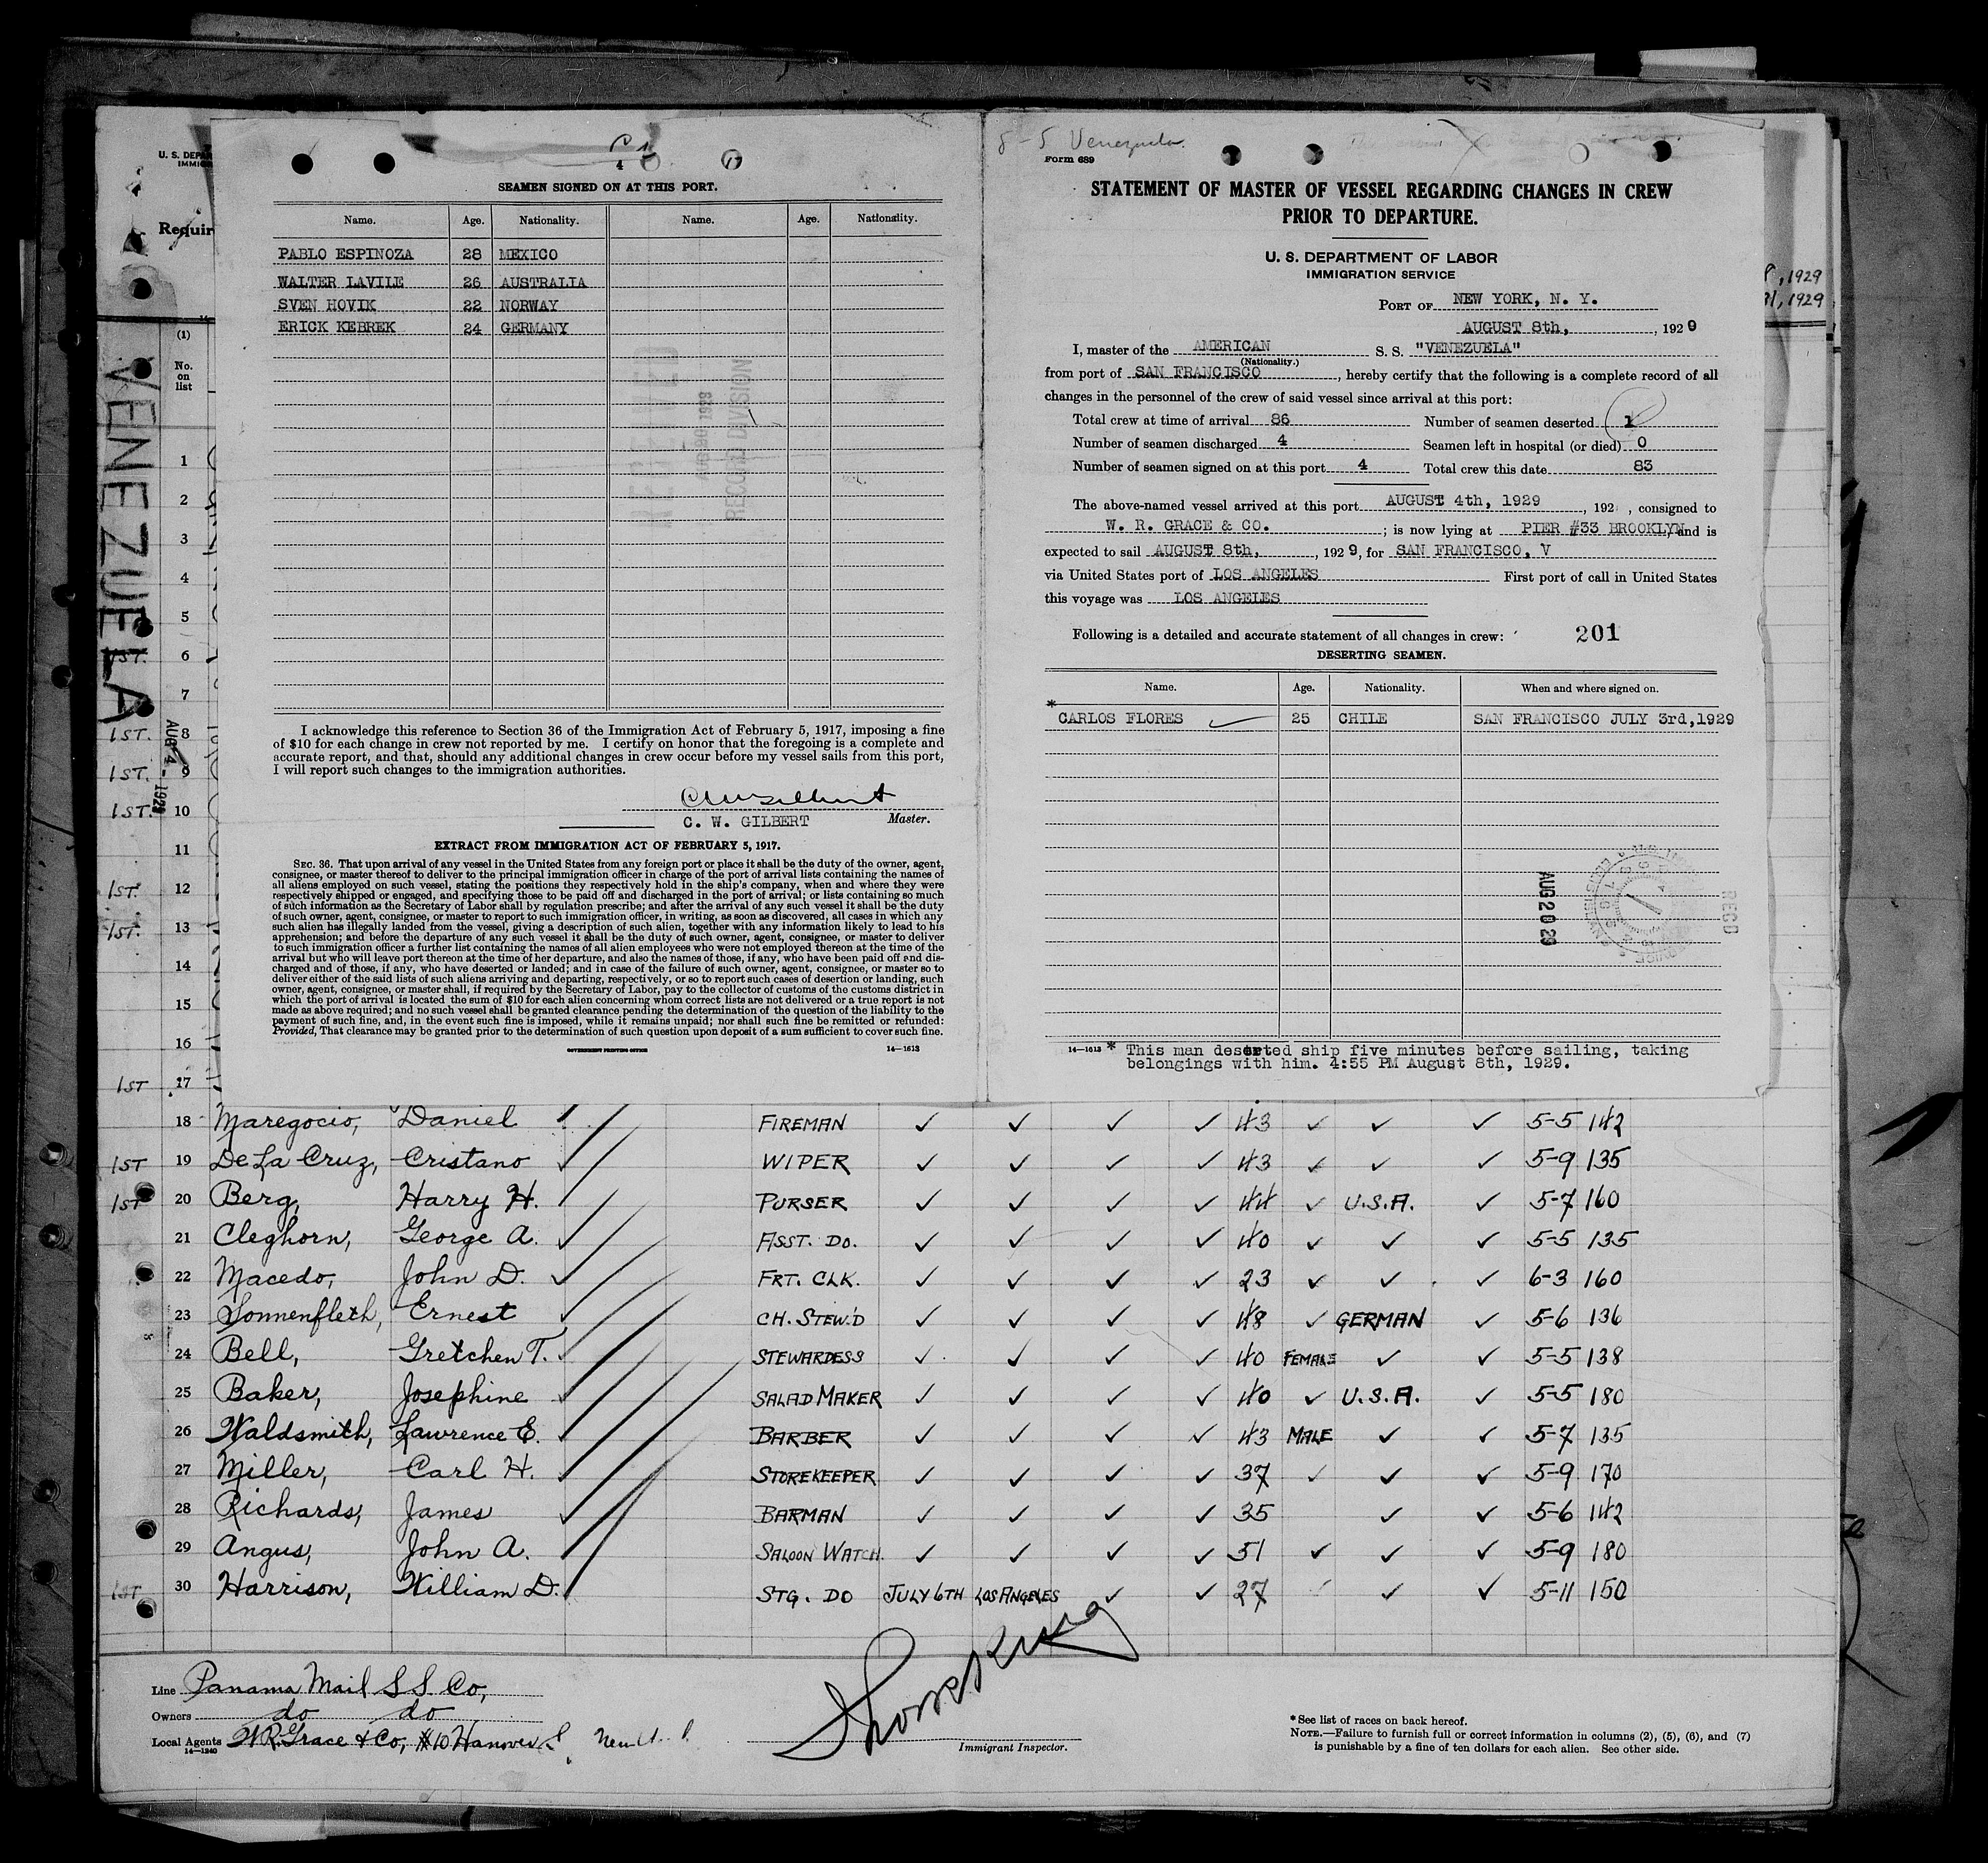 U. S. DEPA
IMMIG
Requir
(1)
No.
on
list
VENEZUELA
AUG 4 - 1929
4
SEAMEN SIGNED ON AT THIS PORT.
Name. Age. Nationality. Name. Age. Nationality.
PABLO ESPINOZA 28 MEXICO
WALTER LAVILE 26 AUSTRALIA
SVEN HOVIK 22 NORWAY
ERICK KEBREK 24 GERMANY
RECEIVED
RECORD DIVISION
I acknowledge this reference to Section 36 of the Immigration Act of February 5, 1917, imposing a fine
of $10 for each change in crew not reported by me. I certify on honor that the foregoing is a complete and
accurate report, and that, should any additional changes in crew occur before my vessel sails from this port,
I will report such changes to the immigration authorities.
CWGilbert
C. W. GILBERT Master.
EXTRACT FROM IMMIGRATION ACT OF FEBRUARY 5, 1917.
SEC. 36. That upon arrival of any vessel in the United States from any foreign port or place it shall be the duty of the owner, agent,
consignee, or master thereof to deliver to the principal immigration officer in charge of the port of arrival lists containing the names of
all aliens employed on such vessel, stating the positions they respectively hold in the ship's company, when and where they were
respectively shipped or engaged, and specifying those to be paid off and discharged in the port of arrival; or lists containing so much
of such information as the Secretary of Labor shall by regulation prescribe; and after the arrival of any such vessel it shall be the duty
of such owner, agent, consignee, or master to report to such immigration officer, in writing, as soon as discovered, all cases in which any
such alien has illegally landed from the vessel, giving a description of such alien, together with any information likely to lead to his
apprehension; and before the departure of any such vessel it shall be the duty of such owner, agent, consignee, or master to deliver
to such immigration officer a further list containing the names of all alien employees who were not employed thereon at the time of the
arrival but who will leave port thereon at the time of her departure, and also the names of those, if any, who have been paid off and dis-
charged and of those, if any, who have deserted or landed; and in case of the failure of such owner, agent, consignee, or master so to
deliver either of the said lists of such aliens arriving and departing, respectively, or so to report such cases of desertion or landing, such
owner, agent, consignee, or master shall, if required by the Secretary of Labor, pay to the collector of customs of the customs district in
which the port of arrival is located the sum of $10 for each alien concerning whom correct lists are not delivered or a true report is not
made as above required; and no such vessel shall be granted clearance pending the determination of the question of the liability to the
payment of such fine, and, in the event such fine is imposed, while it remains unpaid; nor shall such fine be remitted or refunded:
Provided, That clearance may be granted prior to the determination of such question upon deposit of a sum sufficient to cover such fine.
GOVERNMENT PRINTING OFFICE 14—1613
8-5 Venezuela.
Form 689
STATEMENT OF MASTER OF VESSEL REGARDING CHANGES IN CREW
PRIOR TO DEPARTURE.
U. S. DEPARTMENT OF LABOR
IMMIGRATION SERVICE
PORT OF NEW YORK, N. Y.
AUGUST 8th, , 192 9
I, master of the AMERICAN S. S. "VENEZUELA"
(Nationality.)
from port of SAN FRANCISCO , hereby certify that the following is a complete record of all
changes in the personnel of the crew of said vessel since arrival at this port:
Total crew at time of arrival 86 Number of seamen deserted 1
Number of seamen discharged 4 Seamen left in hospital (or died) 0
Number of seamen signed on at this port 4 Total crew this date 83
The above-named vessel arrived at this port AUGUST 4th, 1929 , 192 , consigned to
W. R. GRACE & CO. ; is now lying at PIER #33 BROOKLYN, and is
expected to sail AUGUST 8th, , 192 9, for SAN FRANCISCO, V
via United States port of LOS ANGELES First port of call in United States
this voyage was LOS ANGELES
Following is a detailed and accurate statement of all changes in crew: 201
DESERTING SEAMEN.
Name. Age. Nationality. When and where signed on.
* CARLOS FLORES 25 CHILE SAN FRANCISCO JULY 3rd,1929
AUG 20 29
REC'D
14—1613 * This man deserted ship five minutes before sailing, taking
belongings with him. 4:55 PM August 8th, 1929.
, 1929
, 1929
1
2
3
4
5
1ST. 6
7
1ST. 8
1ST. 9
1ST. 10
11
1ST. 12
1ST. 13
14
15
16
1ST 17
18 Maregocio, Daniel ✓ FIREMAN ✓ ✓ ✓ ✓ 43 ✓ ✓ ✓ 5-5 142
1ST 19 De La Cruz, Cristano ✓ WIPER ✓ ✓ ✓ ✓ 43 ✓ ✓ ✓ 5-9 135
1ST 20 Berg, Harry H. PURSER ✓ ✓ ✓ ✓ 44 ✓ U.S.A. ✓ 5-7 160
21 Cleghorn, George A. ✓ ASST. DO. ✓ ✓ ✓ ✓ 40 ✓ ✓ ✓ 5-5 135
22 Macedo, John D. ✓ FRT. CLK. ✓ ✓ ✓ ✓ 23 ✓ ✓ ✓ 6-3 160
23 Sonnenfleth, Ernest ✓ CH. STEW'D ✓ ✓ ✓ ✓ 48 ✓ GERMAN ✓ 5-6 136
24 Bell, Gretchen T. ✓ STEWARDESS ✓ ✓ ✓ ✓ 40 FEMALE ✓ ✓ 5-5 138
25 Baker, Josephine ✓ SALAD MAKER ✓ ✓ ✓ ✓ 40 ✓ U.S.A. ✓ 5-5 180
26 Waldsmith, Lawrence E. ✓ BARBER ✓ ✓ ✓ ✓ 43 MALE ✓ ✓ 5-7 135
27 Miller, Carl H. ✓ STOREKEEPER ✓ ✓ ✓ ✓ 37 ✓ ✓ ✓ 5-9 170
28 Richards, James ✓ BARMAN ✓ ✓ ✓ ✓ 35 ✓ ✓ 5-6 142
29 Angus, John A. SALOON WATCH. ✓ ✓ ✓ ✓ 51 ✓ ✓ ✓ 5-9 180
1ST. 30 Harrison, William D. STG. DO JULY 6TH LOS ANGELES ✓ ✓ 27 ✓ ✓ ✓ 5-11 150
Line Panama Mail S S Co,
Owners do do
Local Agents W.R. Grace & Co, #10 Hanover
14—1240
Immigrant Inspector.
* See list of races on back hereof.
NOTE.—Failure to furnish full or correct information in columns (2), (5), (6), and (7)
is punishable by a fine of ten dollars for each alien. See other side.